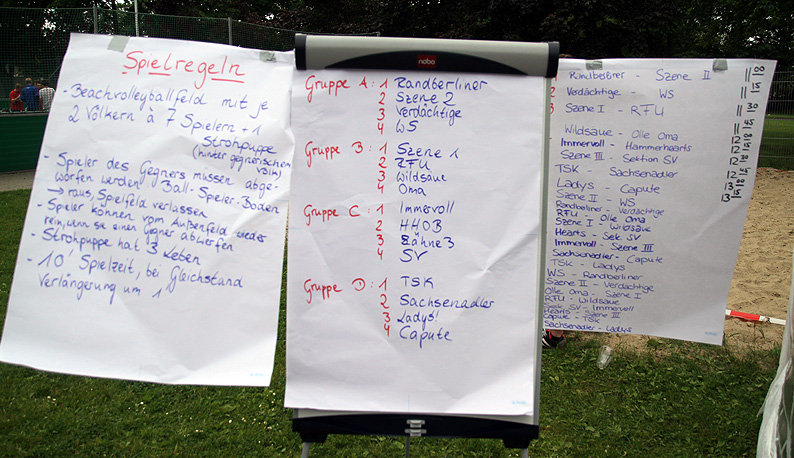 Spielregeln
- Beachvolleyballfeld mit je
2 Völkern à 7 Spielern + 1
Strohpuppe
(hinter gegnerischen
Volk)
- Spieler des Gegners müssen abge-
worfen werden! Ball-Spieler-Boden
→ raus, Spielfeld verlassen
- Spieler können vom Außenfeld wieder
rein, wenn sie einen Gegner abwerfen
- Strohpuppe hat 3 Leben
- 10' Spielzeit, bei Gleichstand
Verlängerung um 1'
nobo
Gruppe A: 1 Randberliner
2 Szene 2
3 Verdächtige
4 WS
Gruppe B: 1 Szene 1
2 RFU
3 Wildsaue
4 Oma
Gruppe C: 1 Immervoll
2 HHOB
3 Zähne 3
4 SV
Gruppe D: 1 TSK
2 Sachsenadler
3 Ladys!
4 Capute
Randberliner - Szene II 11 00
Verdächtige - WS 11 15
Szene I - RFU 11 30
Wildsaue - Olle Oma 11 45
Immervoll - Hammerhearts 12
Szene III - Sektion SV 12
TSK - Sachsenadler 12
Ladys - Capute 12
Szene II - WS 13
Randberliner - Verdächtige 13
RFU - Olle Oma
Szene I - Wildsaue
Hearts - Sek. SV
Immervoll - Szene III
Sachsenadler - Capute
TSK - Ladys
WS - Randberliner
Szene II - Verdächtige
Olle Oma - Szene I
RFU - Wildsaue
Sek SV - Immervoll
Hearts - Szene III
Capute - TSK
Sachsenadler - Ladys